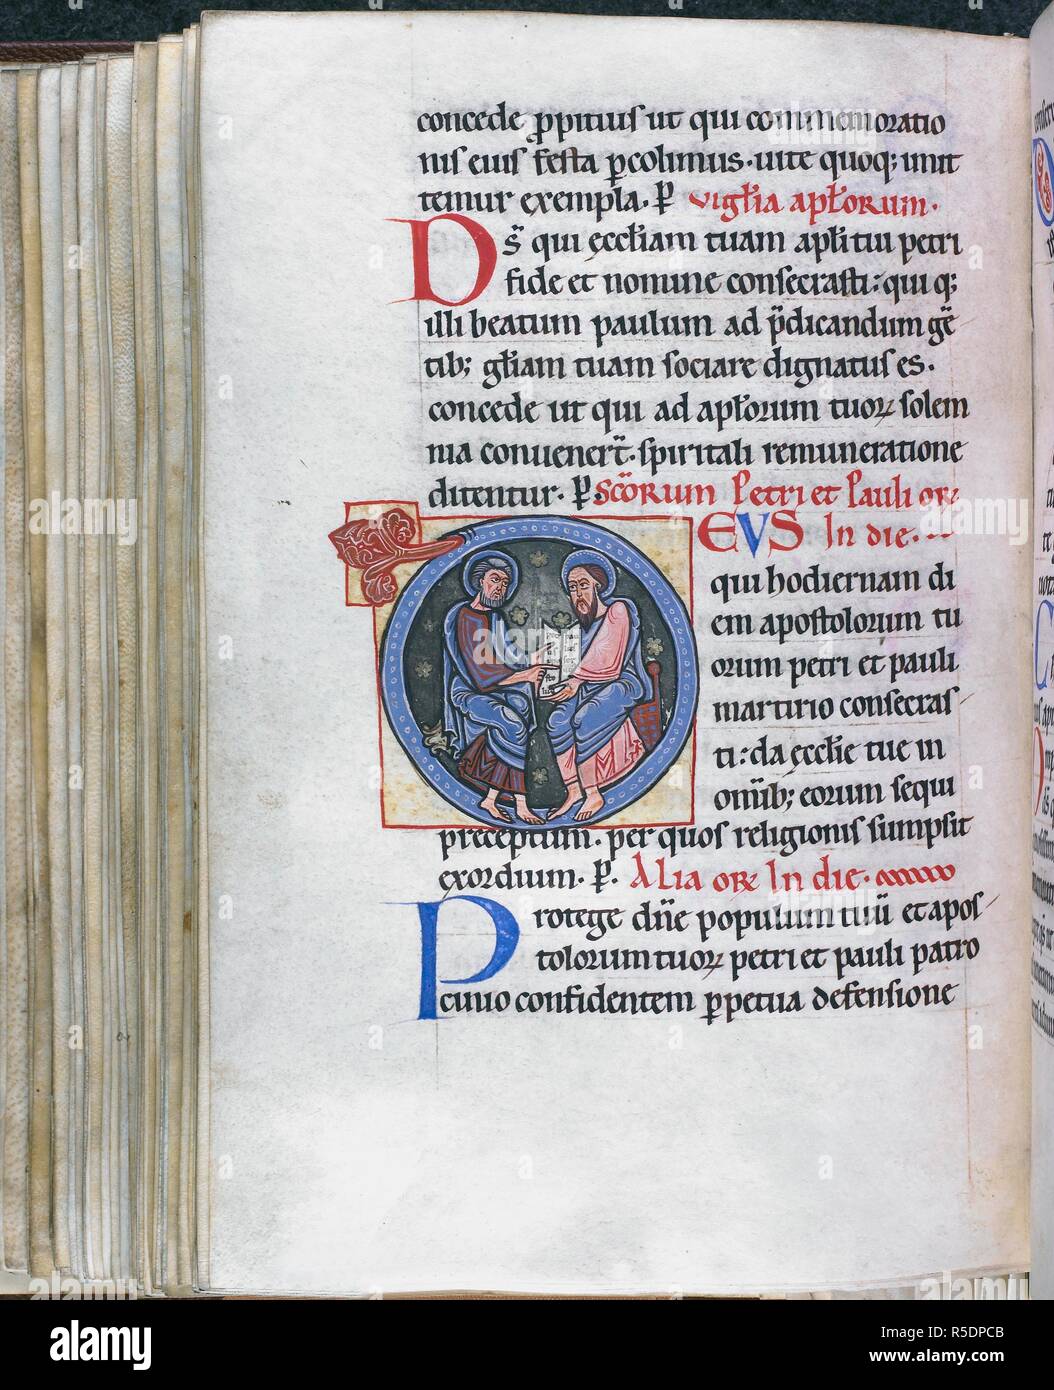 concede ꝓpitius ut qui commemoratio
nis eius festa ꝑcolimus · uite quoq; imit
temur exempla · P̶ vigłia apłorum ·
Ds̄ qui ęccłiam tuam apłi tui petri
fide et nomine consecrasti : qui q;
illi beatum paulum ad p̄dicandum gē
tib; głiam tuam sociare dignatus es .
concede ut qui ad apłorum tuoꝝ solem
nia conuenert̄ · spiritali remuneratione
ditentur · P̶ . Sc̄orum Petri et Pauli or̄
DEVS In die . ..
qui hodiernam di
em apostolorum tu
orum petri et pauli
martirio consecras
ti : da ęccłie tue in
omīb; eorum sequi
preceptum . per quos religionis sumpsit
exordium . P̶ . Alia or̄ In die .
Protege dn̄e populum tuū et apos
tolorum tuoꝝ petri et pauli patro
cinio confidentem ꝑpetua defensione
alamy
Image ID: R5DPCB
www.alamy.com